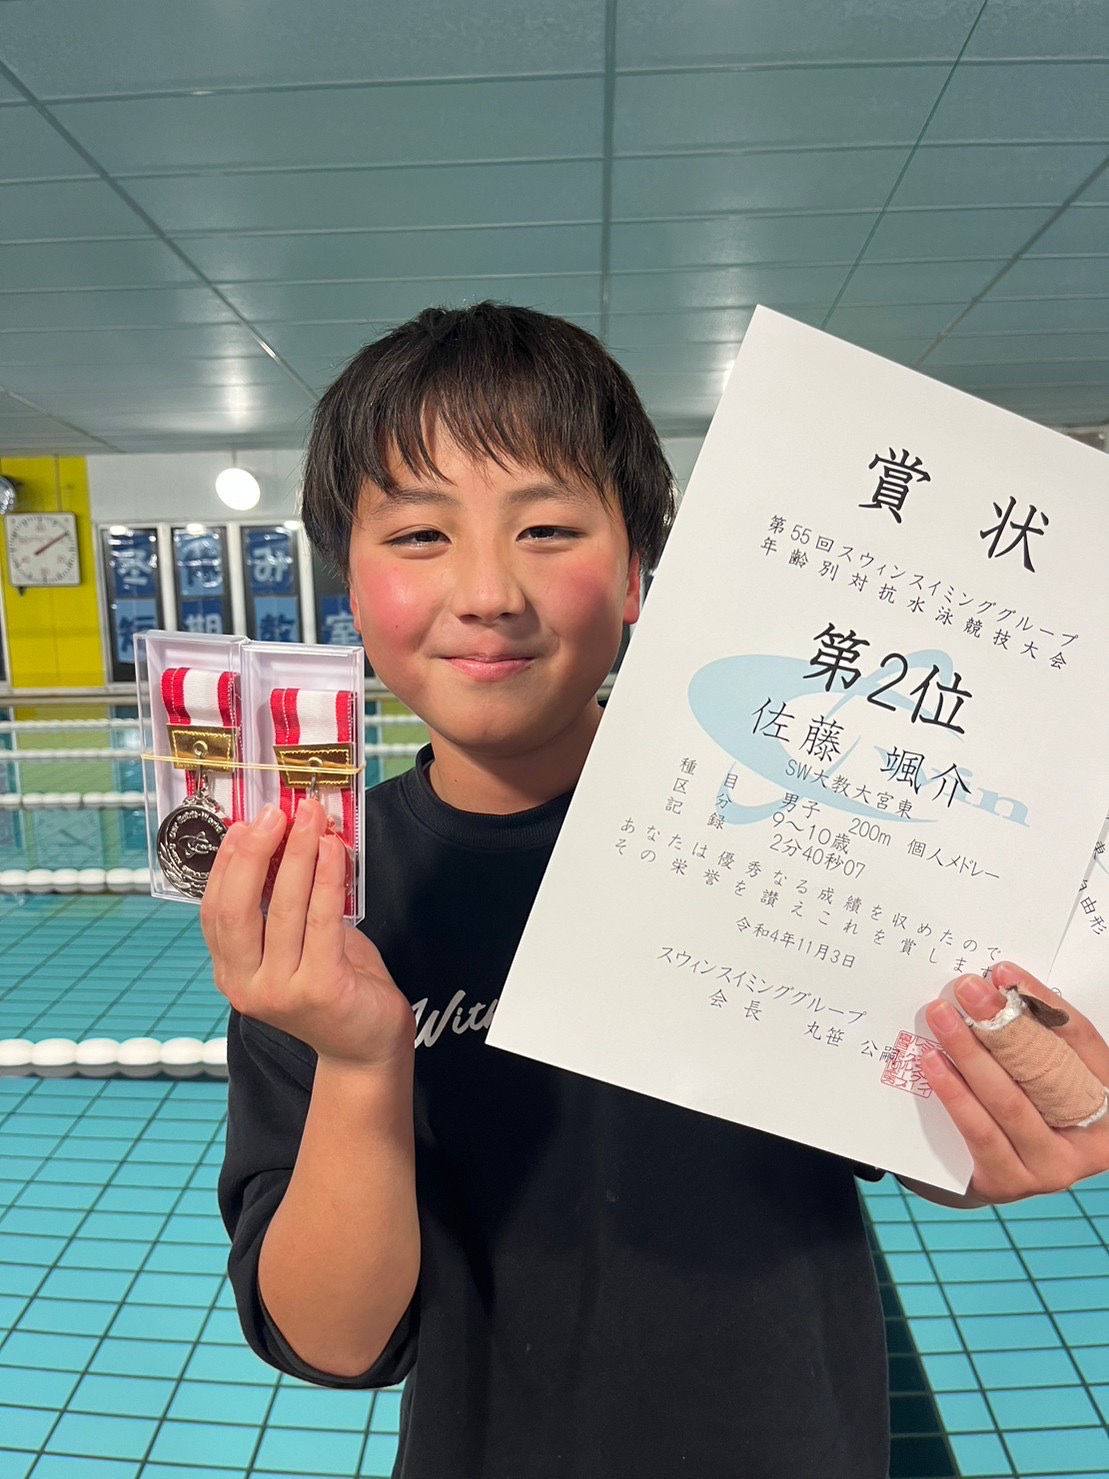 賞状
第55回スウィンスイミンググループ
年齢別対抗水泳競技大会
第2位
佐藤 颯介
SW大教大宮東
種目 男子 200m 個人メドレー
区分 9〜10歳
記録 2分40秒07
あなたは優秀なる成績を収めたので
その栄誉を讃えこれを賞します
令和4年11月3日
スウィンスイミンググループ
会長 丸笹 公嗣
Swin
With
短期教室